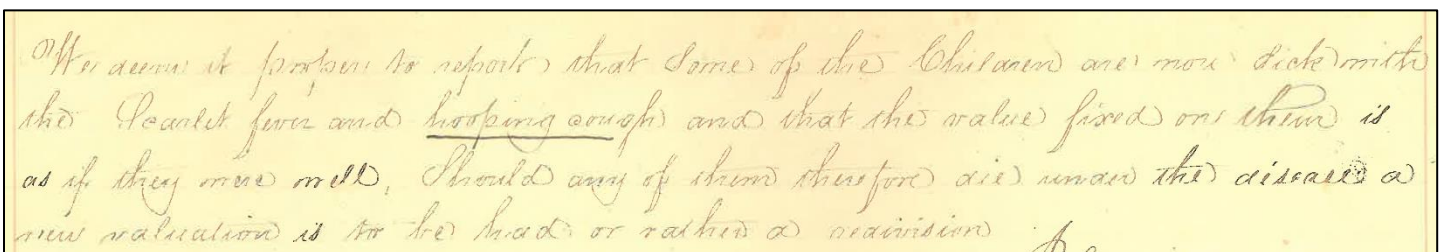 We deem it proper to report, that Some of the Children are now Sick with
the Scarlet fever and hooping cough and that the value fixed on them is
as if they were well, Should any of them therefore die under the disease a
new valuation is to be had or rather a redivision